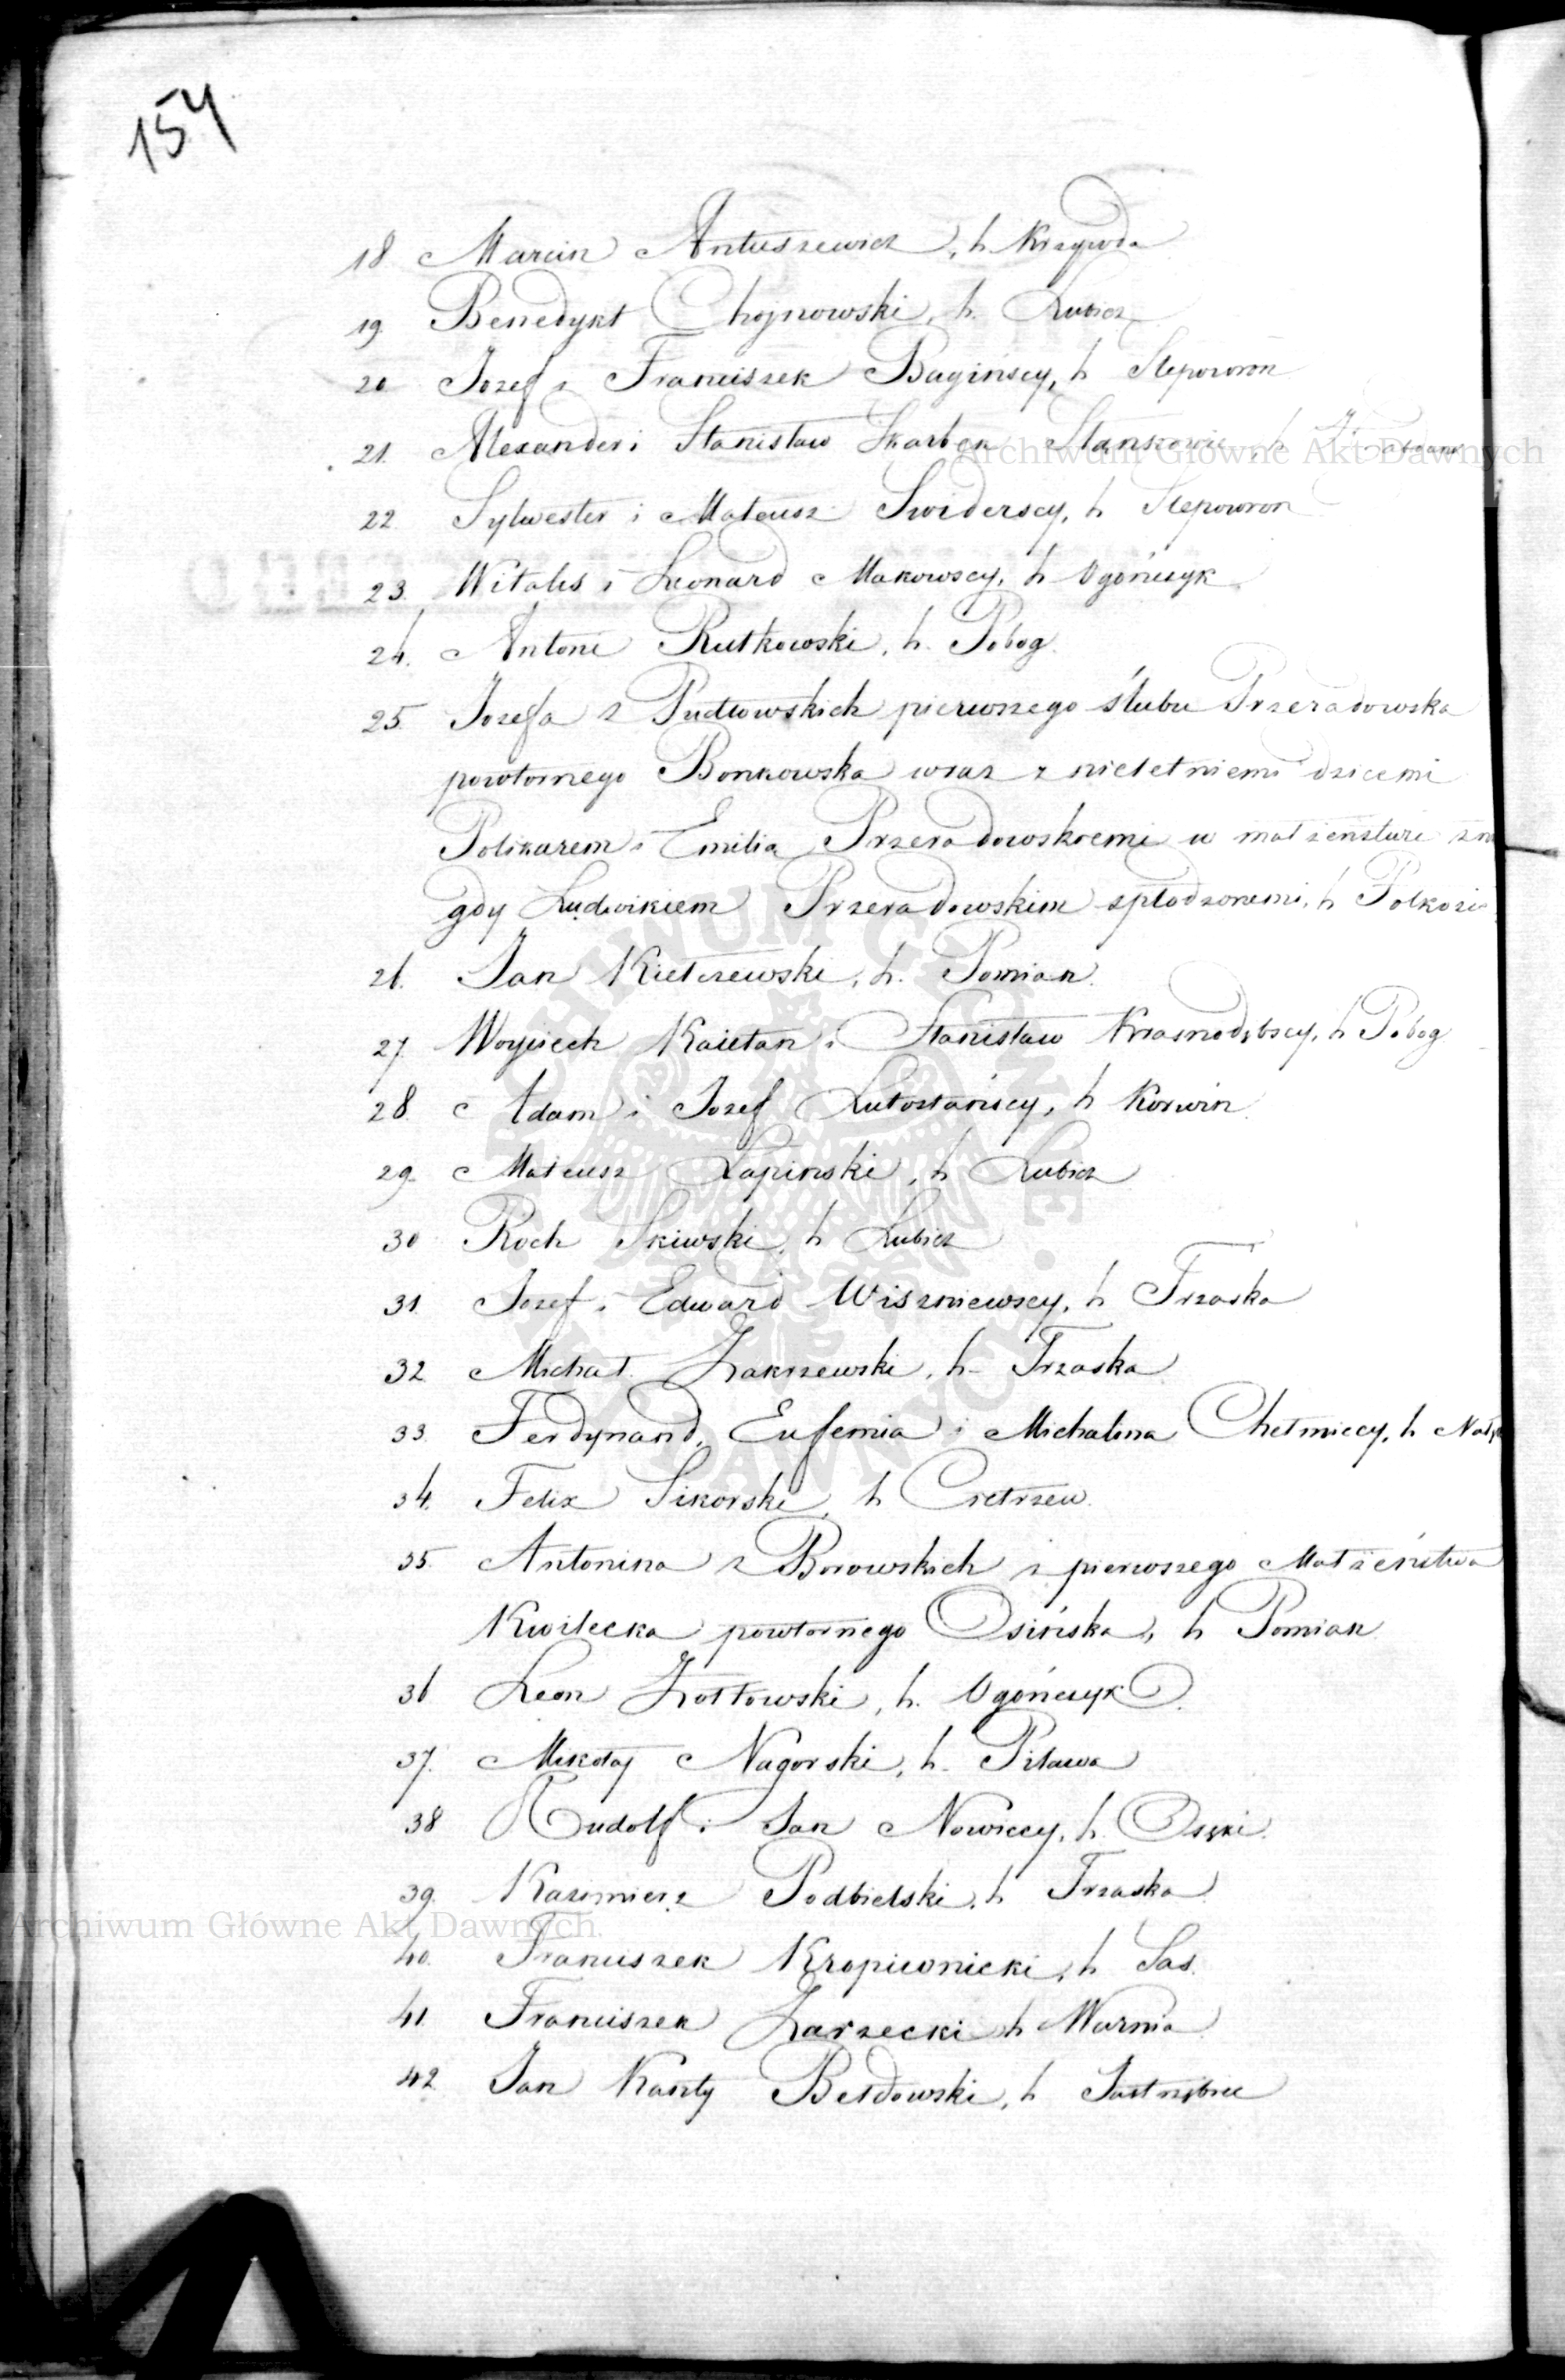 154
18 Marcin Antuszewicz, h. Krzywda
19 Benedykt Chojnowski, h. Lubicz
20 Jozef i Franciszek Bagińscy, h Slepowron
21. Alexander i Stanisław Skarbek h
Archiwum Główne Akt Dawnych
22. Sylwester i Mateusz Swiderscy, h Slepowron
23. Witalis i Leonard Makowscy, h Ogończyk
24. Antoni Rutkowski, h. Pobog.
25. Jozefa z Pudłowskich pierwszego ślubu Przeradowska
powtornego Bonkowska wraz z nieletniemi dziećmi
Polikarem i Emilia Przeradowskiemi w małżenstwie
gdy Ludwikiem Przeradowskim spłodzonemi, h
26. Jan Kiełczewski, h. Pomian.
27. Woyciech Kaietan i Stanisław Krasnodębscy, h Pobog
28. Adam i Jozef Lutostańscy, h Korwin.
29. Mateusz Łapinski, h Lubicz
30 Roch Skiwski, h Lubicz
31. Jozef i Edward Wiszniewscy, h Trzaska
32 Michał Zakrzewski, h. Trzaska
33. Ferdynand, Eufemia i Michalina Chełmiccy, h
34. Felix Sikorski, h Cietrzew.
35. Antonina z Borowskich z pierwszego Małżeństwa
Kwilecka powtornego Osińska, h Pomian
36 Leon Zołtowski, h. Ogończyk.
37. Mikołaj Nagorski, h. Pilawa
38 Rudolf i Jan Nowiccy, h. Osęki.
39. Kazimierz Podbielski, h Trzaska
Archiwum Główne Akt Dawnych
40. Franciszek Kropiwnicki, h Sas.
41. Franciszek Zarzecki h Warnia
42. Jan Kanty Bełdowski, h Jastrzębiec
ARCHIWUM GŁÓWNE AKT DAWNYCH